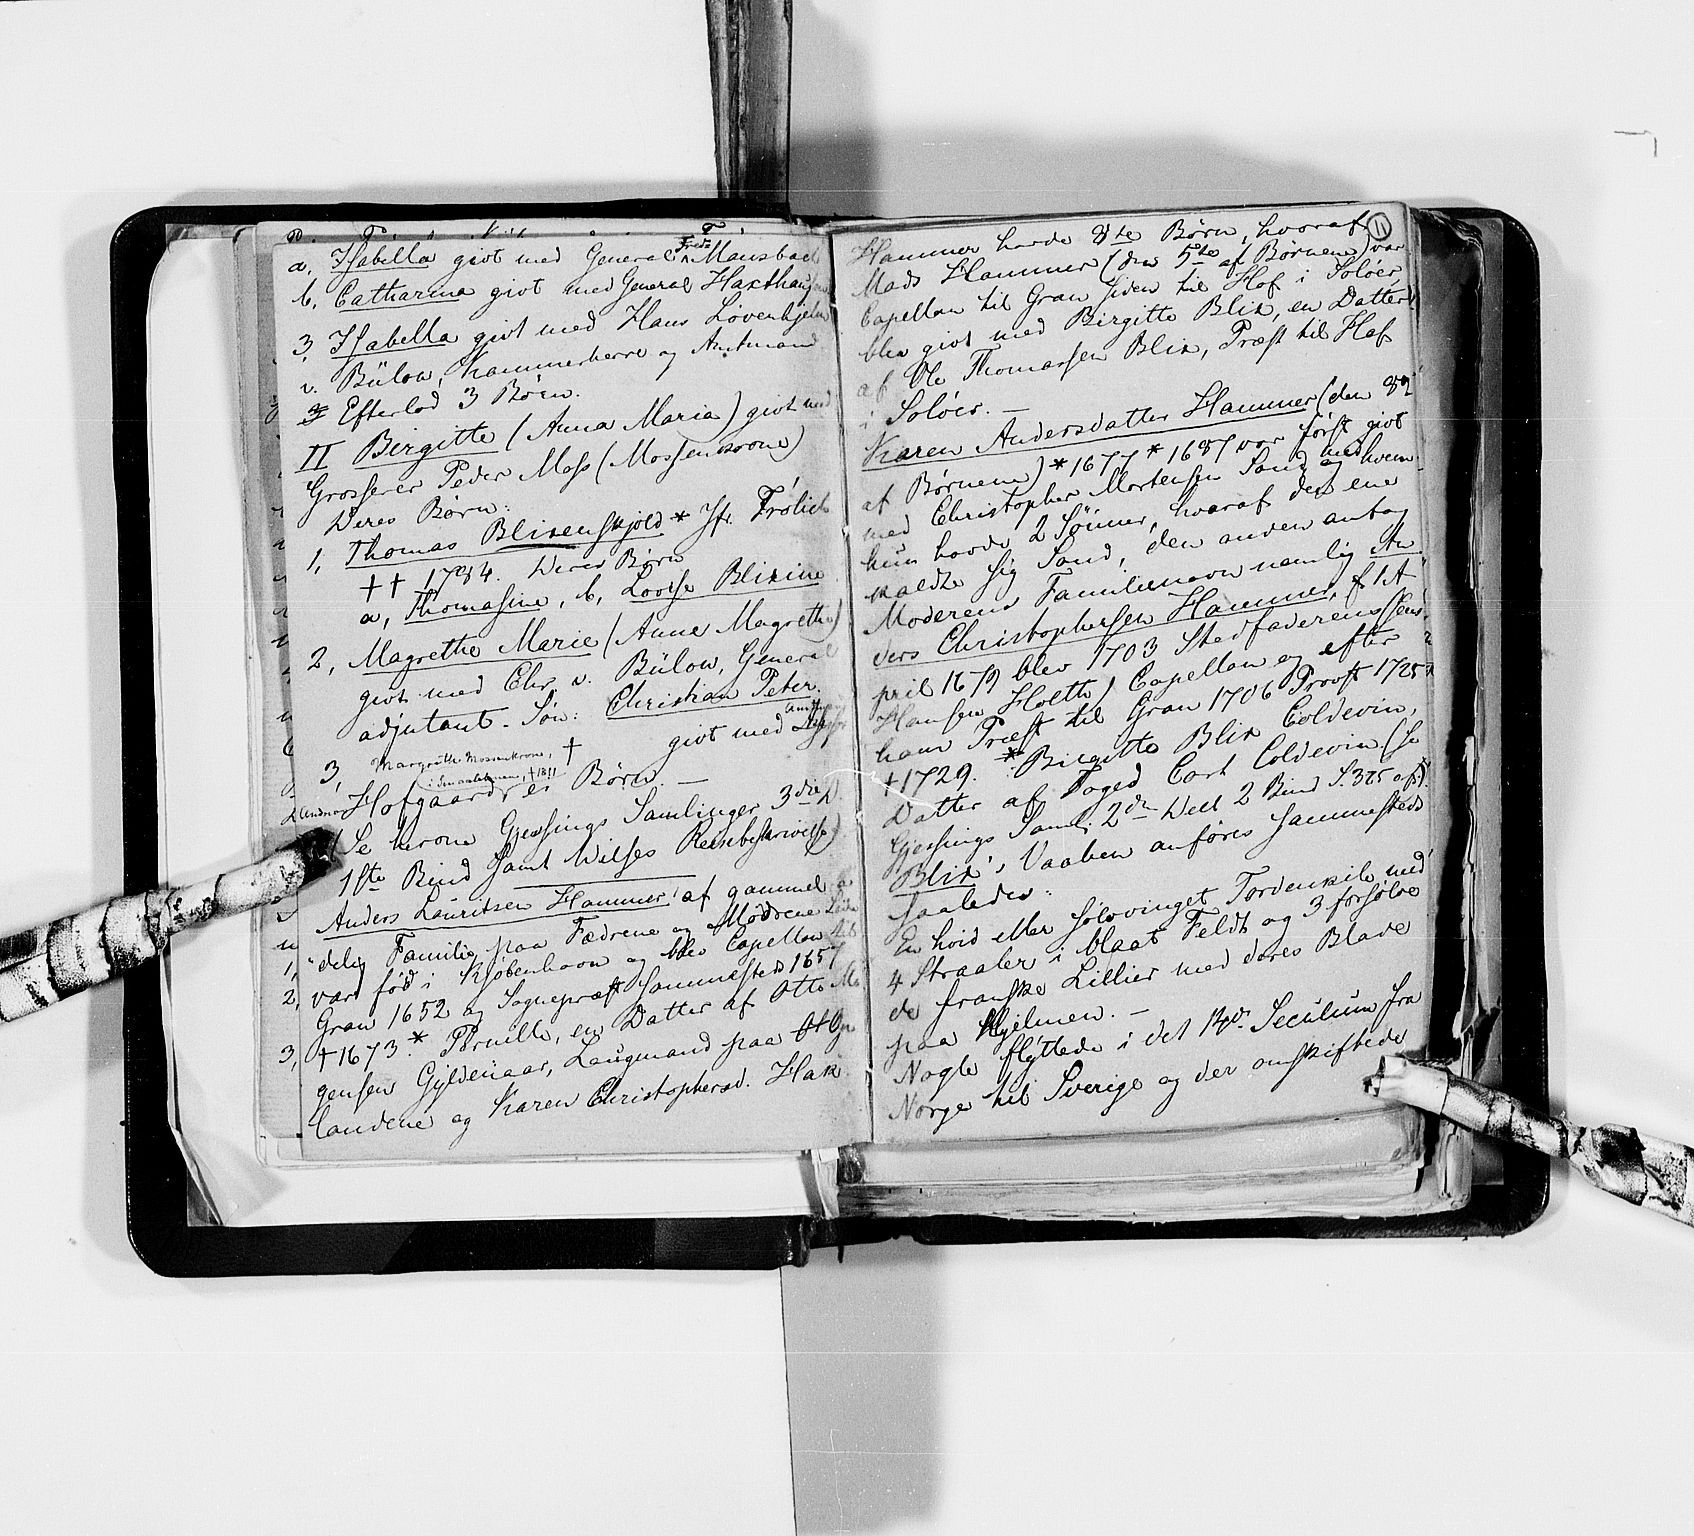 a, Isabella givt med General Fredr. Mansbach
b, Catharina givt med General Haxthausen
3, Isabella givt med Hans Løvenhjelm
v. Bülow, Kammerherre og Amtmand
Efterlod 3 Børn.
II Birgitte (Anna Maria) givt med
Grosserer Peder Moss (Mossenkrone)
Deres Børn:
1, Thomas Blixenskjold * Jfr. Frølich
†† 1784. Deres Børn
a, Thomasine, b, Lovise Blixine
2, Magrethe Marie (Anne Magrethe)
givt med Chr. v. Bülow, General
adjutant. Søn: Christian Peter.
3, Margrethe Mossenkrone, † givt med
i Smaalenene, † 1811
Hofgaard, ei Børn. —
(Se herom Giessings Samlinger 3die D.
1ste Bind samt Wilses Reisebeskrivelse)
Anders Lauritsen Hammer, af gammel a-
delig Familie paa Fædrene og Mødrene Side
var fød i Kjøbenhavn og blev Capellan til
Gran 1652 og Sognepræst sammesteds 1657
† 1673. * Pernille, en Datter af Otto Mo-
gensen Gyldenaar, Laugmand paa Op-
landene og Karen Christophersd. Hak
11
Hammer havde 8te Børn, hvoraf
Mads Hammer (den 5te af Børnene) var
Capellan til Gran siden til Hof i Soløer,
blev givt med Birgitte Blix, en Datter
af Ole Thomassen Blix, Præst til Hof
i Soløer. —
Karen Andersdatter Hammer (den 8de
af Børnene) * 1677 * 1687 var først givt
med Christopher Mortensen Sand og med hvem
hun havde 2 Sønner, hvoraf den ene
kaldte sig Sand, den anden antog
Moderens Familienavn nemlig An-
ders Christophersen Hammer, f. 1 A-
pril 1679 blev 1703 Stedfaderens (Jens
Hansen Holth) Capellan og efter
ham Præst til Gran 1706 Provst 1725
† 1729. * Birgitte Blix Coldevin,
Datter af Foged Cort Coldevin (se
Giessings Saml. 2den Deel 2 Bind S. 325 of).
Blix's Vaaben anføres sammesteds
saaledes:
En hvid eller sølvvinget Tordenkile med
4 Straaler i blaat Feldt og 3 forsølve-
de franske Lillier med deres Blade
paa Hjelmen. —
Nogle flyttede i det 17de Seculum fra
Norge til Sverige og der omskiftede